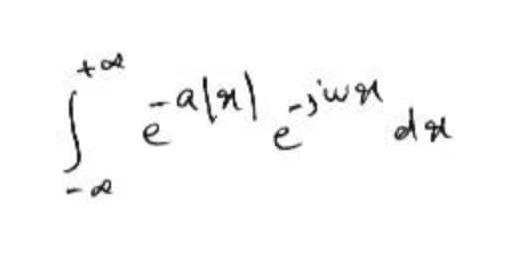 \int_{-\infty}^{+\infty} e^{-a|x|} e^{-jwx} dx